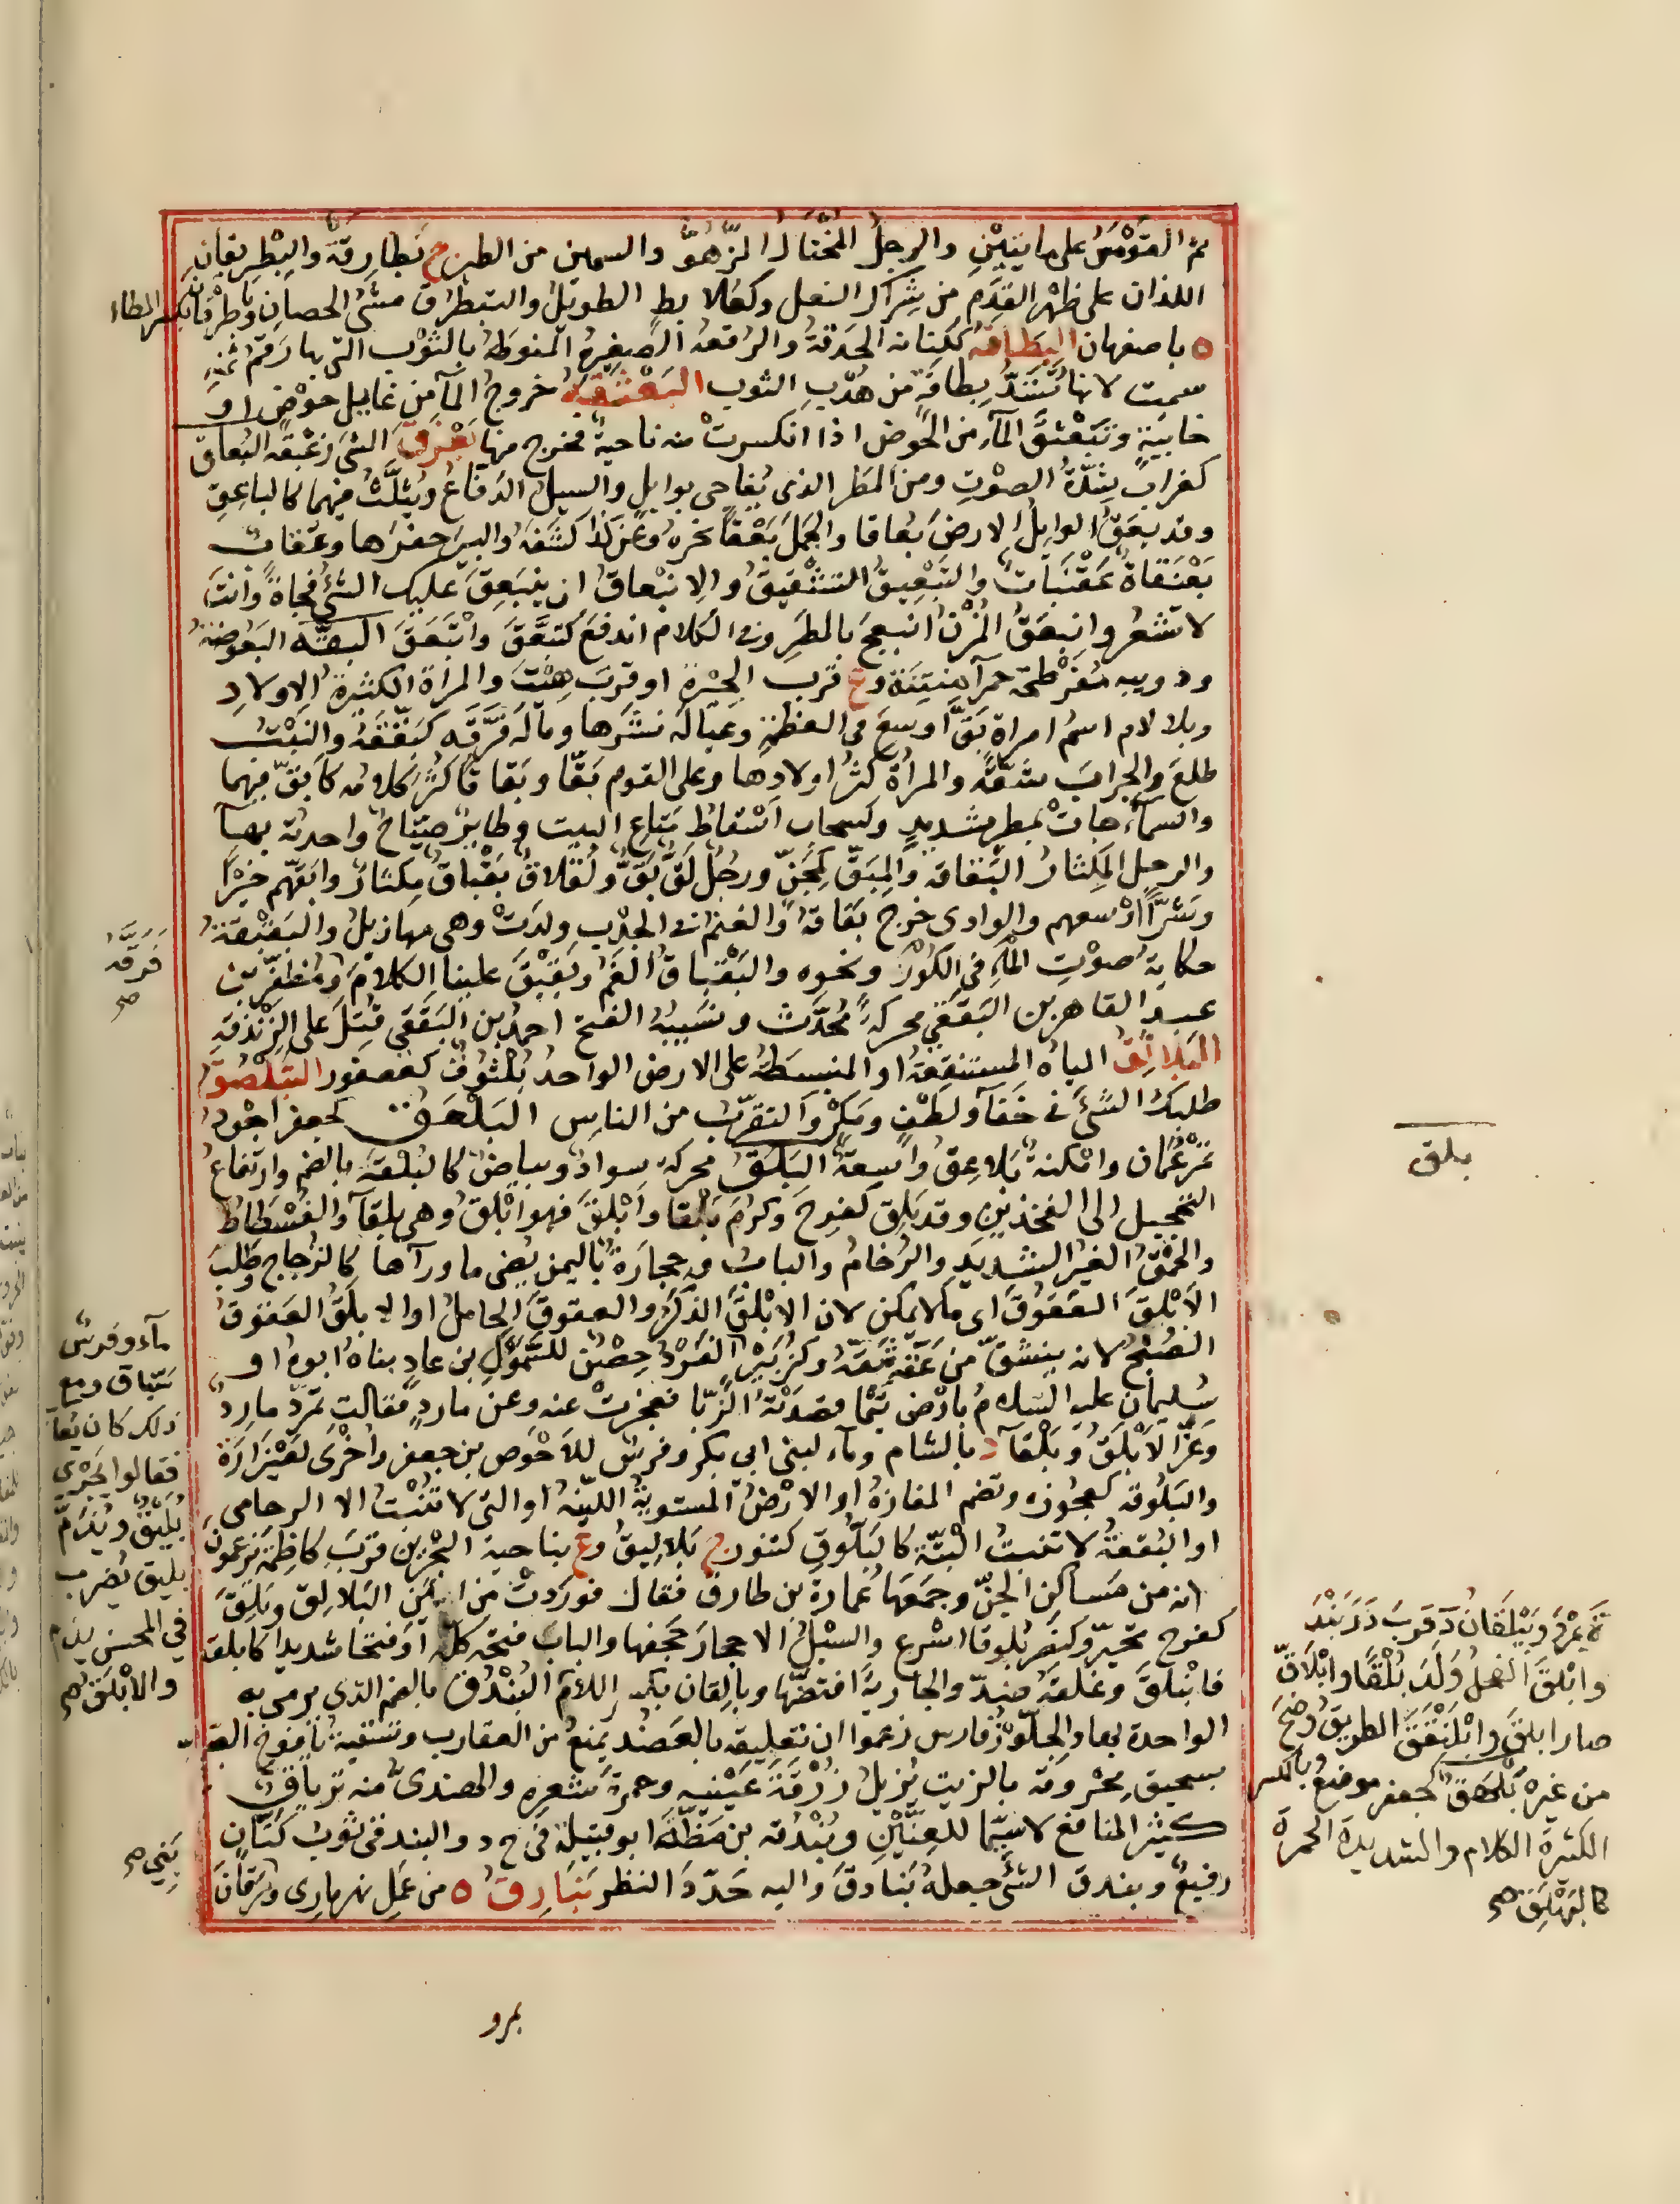 ثم القَوْمَسُ على مايتَيْنِ والرجلُ المُختالُ المَزْهُوُّ والسمين من الطير ج بَطارِقَة والبِطْرِيقانِ
اللذان على ظهْر القدَمِ من شِرَاكِ النعل وكعُلابطٍ الطويلُ والتبطْرُق مَشْىُ الحصانِ وبِاطَرْقان بكسر الطاء
ة باصفهان البِطَاقَة ككِتابَة الحدقةُ والرُقعةُ الصغيرةُ المنوطَةُ بالثوب التي بها رَقمُ ثمنِهِ
سميت لانها تُشَدُّ بطاقَةٍ من هُدْبِ الثوب البَعْثَقَةُ خروجُ المآء من غايِل حوْضٍ او
خابيَةٍ وتَبَعْثقَ المآء من الحَوض اذا انكسرتْ منه ناحيةٌ فخرج منها بَعْزَقَ الشىَ زَعْبَقَه البُعاق
كغرابٍ شِدَّةُ الصوْتِ ومن المطَر الذى يُفاجى بوابِلٍ والسيلُ الدَفّاعُ ويُثلَّثُ فيهما كالباعِقِ
وقد بعَقَ الوابلُ الارضَ بُعاقا والجمَلَ بَعْقاً نحرهُ وعن كذا كَشَفهُ والبيرَ حفَرَها وعُقابٌ
بَعَنْقاةٌ عَقَنْبَاتٌ والتَبْعِيقُ التشْقيقُ والاِنبعاقُ ان يَنبَعِقَ عليك الشئُ فجاةً وانتَ
لا تشعُر وانبعَقَ المُزْنُ انبعجَ بالمطَرِ وفى الكلام اندفَعَ كتَبَعَّقَ وابْتَعَقَ البقّه البَعُوضَةُ
ودويبه مُفَرْطحَة حمرآء مُنْتِنَة وع قرب الحِيْرة او قربَ هِيْتَ والمراة الكثيرة الاولادِ
وبلا لام اسمُ امراة بَقَّ اوسعَ فى العطيةِ وعيَالَه نشَرَها ومالَه فَرَّقَه كبَقَّقَهُ والنبْتُ
طلعَ والجرابَ شقّهُ والمرأة كثُر اولادها وعلى القوم بَقّا وبَقاقا كثُرَ كلامُه كابَقَّ فيهما
والسمآء جاتْ بمطرٍ شديدٍ وكسحاب اسْقاطُ متاع البيت وطايرٌ صيَّاحٌ واحدته بهآء
والرجل المِكثارُ البَقاقه والمِبَقِّ كمِجَنٍّ ورجُلٌ لَقٌّ بَقٌّ ولَقْلاقٌ بَقْباقٌ مِكثارٌ وابَقّهم خيْراً
وشرّاً اوْسعهم والوادى خرج بَقاقهُ والغنمُ فى الجدْبِ ولدَتْ وهى مهازيلُ والبَقْبَقَةُ
حكايةُ صوْتِ المآء فى الكُوْز ونحوِه والبَقْباقُ الفَمُ وبَقْبَقَ علينا الكلامَ ومُظفَّر بن
عبد القاهر بن البَقَقِي محركةً مُحدِّث ونَسِيبُهُ الفتح احمدُ بن البَقَقِي قُتلَ على الزَنْدَقةِ
البَلاثِقُ المياه المستنقِعةُ او المنبسطَةُ على الارض الواحدُ بُلْثُوقٌ كعصفور التبَلْصُقُ
طلبكَ الشىَ فى خَفآء ولطْفٍ ومَكْرٍ والتقرّبُ من الناس البَلْعَقُ كجعفر اجْودُ
تمْرِ عُمان وامكنةٌ بَلاعِقُ واسِعةٌ البَلَقُ محركة سوادٌ وبياضٌ كالبُلْقة بالضم وارتفاعُ
التحجيل الى الفخذين وقد بَلِق كفرحَ وكرُمَ بَلَقا وابْلَقَّ فهو ابْلَقُ وهى بلقآء والفُسْطاطُ
والحُمْقُ الغيْر الشديدِ والرُخامُ والبابُ وحجارَةٌ باليمن يُضى ماورآها كالزجاج وطلبَ
الابْلَقَ العَقُوقَ اى مالا يمكن لان الابْلقَ الذكرُ والعقوقَ الحاملُ او الابلَقُ العقوقُ
الصُبحُ لانه ينشقّ من عَقَّه شَقَّهُ وكزُبَيْرٍ الفَرْدُ حِصْنٌ للسّمَوْألِ بن عادٍ بناهُ ابوهُ او
سُليمان عليه السلامُ بارْضِ تَيْما قصدَتْهُ الزَبّا فعجزتْ عنه وعن ماردٍ فقالت تمرّدَ ماردٌ
وعَزَّ الاَبْلَقُ وبَلْقآء د بالشام ومآء لبنى ابى بكر وفرسٌ للاَحْوَصِ بن جعفر واُخْرَى لقَيْزارَةَ
والبَلُوقة كعجُوزه وتضم المفازةُ او الارضُ المستويةُ اللينهُ او التى لا تنْبتُ الا الرخامى
او البُقعةُ لا تنبتُ البتّة كالبَلّوقِ كتنور ج بَلاليقُ وع بناحية البحرَين قربَ كاظِمةَ يزعُمونَ
انه من مَساكن الجنّ وجمَعَها عُمارة بن طارق فقال فورَدتْ من ايمن البَلالِق وبَلِقَ
كفرح تحيّر وكنصَر بُلوقا اسْرع والسَيْلُ الاحجارَ جَحَفها والبابَ فتحَه كلَّه او فتحا شديدا كابلقه
فانْبَلَقَ وغلَقَهُ ضِدٌّ والجاريةَ افتضّها وبالِقان بكسر اللآم البُنْدُق بالضم الذى يرمى به
الواحدة بهاء والجِلَّوْزُ فارس زعموا ان تعليقه بالعَضُد يمنعُ من العقارب وتسقيةُ يافوخِ الصبى
بسحيق محْروقه بالزيت يُزيلُ زُرْقَةَ عَيْنيه وحمرةَ شعره والهندىُّ منه تِرياقٌ
كثيرُ المنافع لا سيَّما للعينَيْنِ وبُنْدُقه بن مَظّةَ ابو قبيلة فى ح د د والبندقى ثوبُ كَتّانٍ
رفيعٌ وبندق الشىَ جعله بَنادِقَ واليه حَدّدَ النظر بَنَارِقُ ة من عَمَل نهرمارى وبَرَقانَ
بمرو
فَرَّقَهُ
صح
مآء وفرسٌ
سَبّاق ومع
ذلك كان يُعابُ
فقالوا يَجْرى
بُلَيْقٌ ويُذَمُّ
بليق يُضربُ
فى المحسن يذم
والابْلَقُ صح
بلق
ة بمرو وبَيْلَقانُ د قربَ دَرَبَنْدَ
وابْلقَ الفحلُ وَلَدَ بُلْقًا وابْلاقَّ
صار ابلقَ وابْلَنْقَقَ الطريقُ وضَحَ
من غيره بَلْهَقٌ كجعفر موضعٌ وبالكسر
الكثيرة الكلام والشديدة الحمرة
كالبِهْلِقِ صح